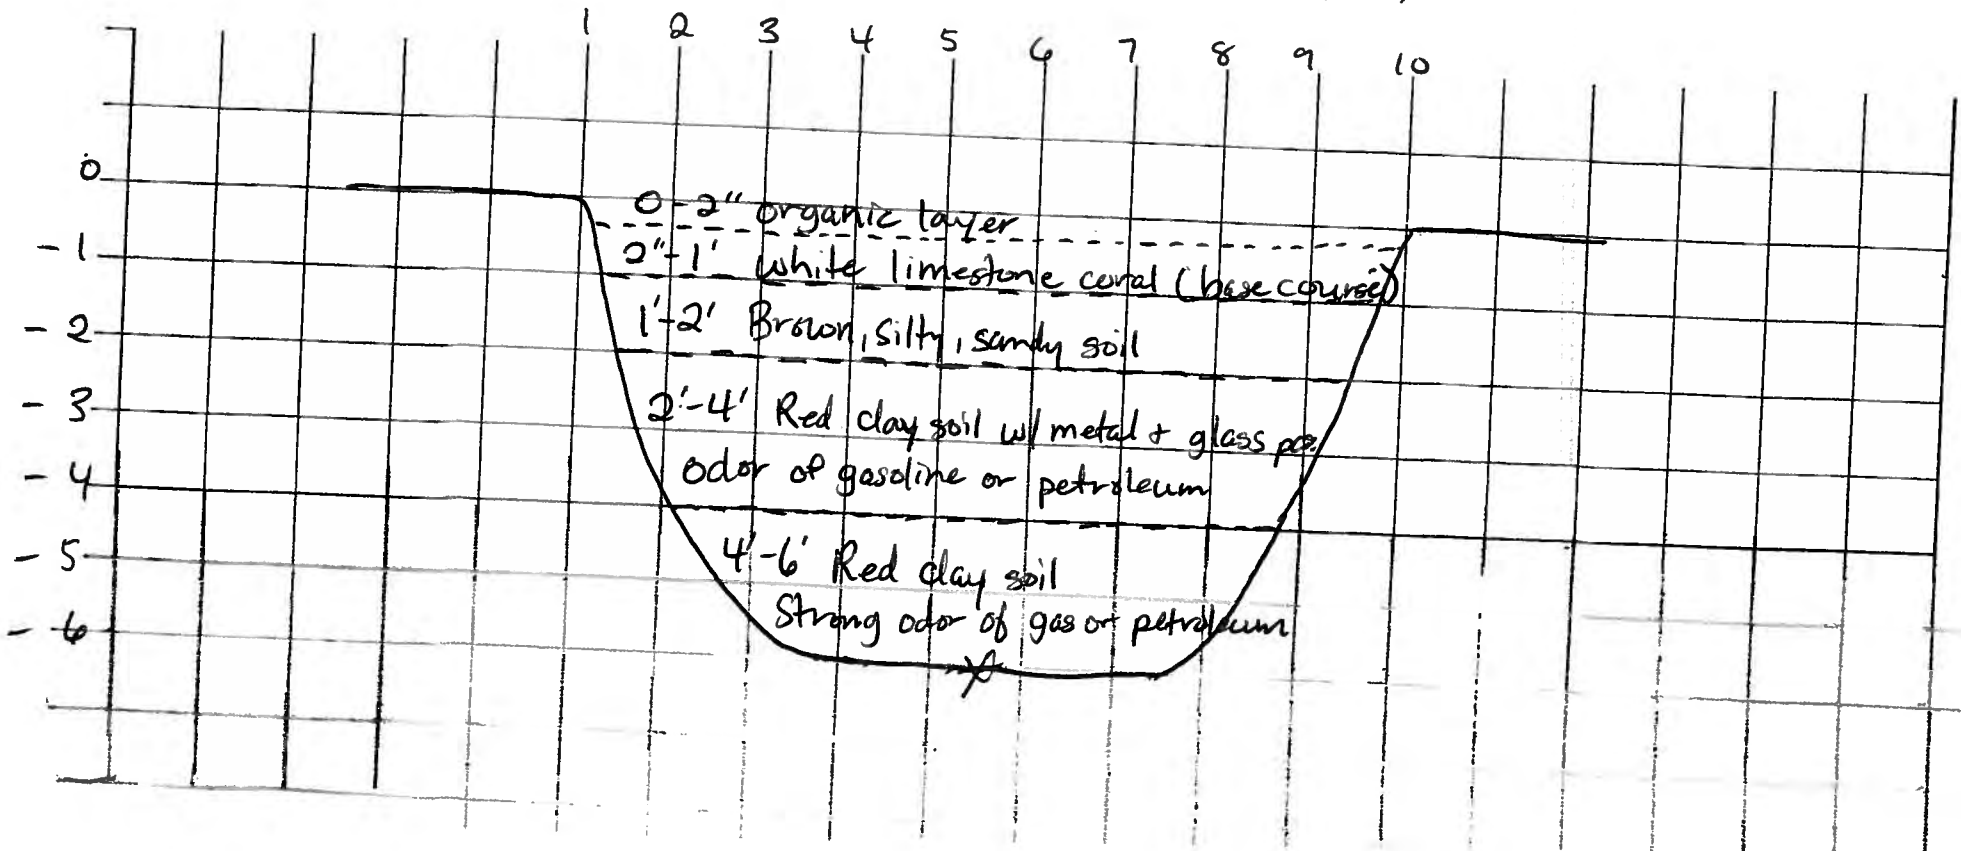 1 2 3 4 5 6 7 8 9 10
0
0-2" organic layer
-1
2"-1' white limestone coral (base course)
-2
1'-2' Brown, silty, sandy soil
-3
2'-4' Red clay soil w/ metal + glass pcs.
-4
odor of gasoline or petroleum
-5
4'-6' Red clay soil
-6
Strong odor of gas or petroleum
X